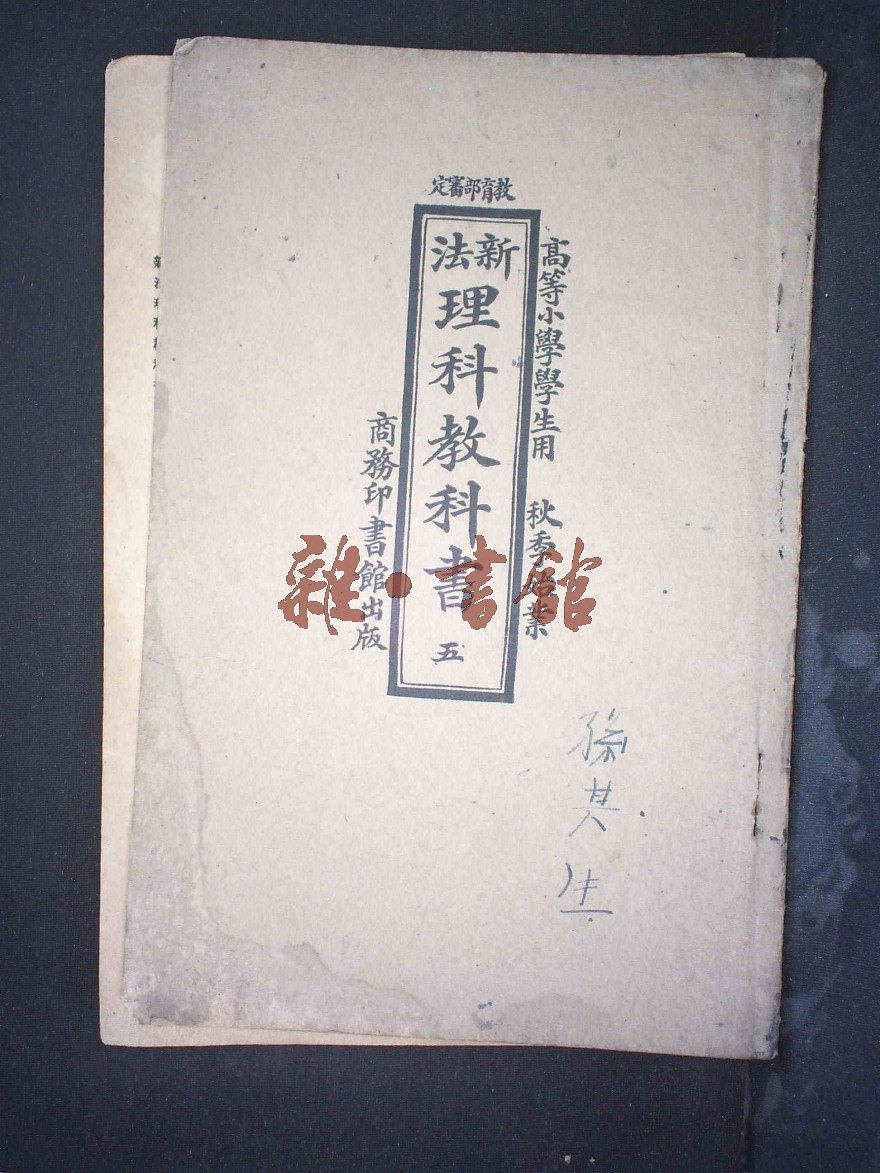 教育部審定
高等小學學生用 秋季始業
新法
理科教科書 五
商務印書館出版
雜·書館
孫其生